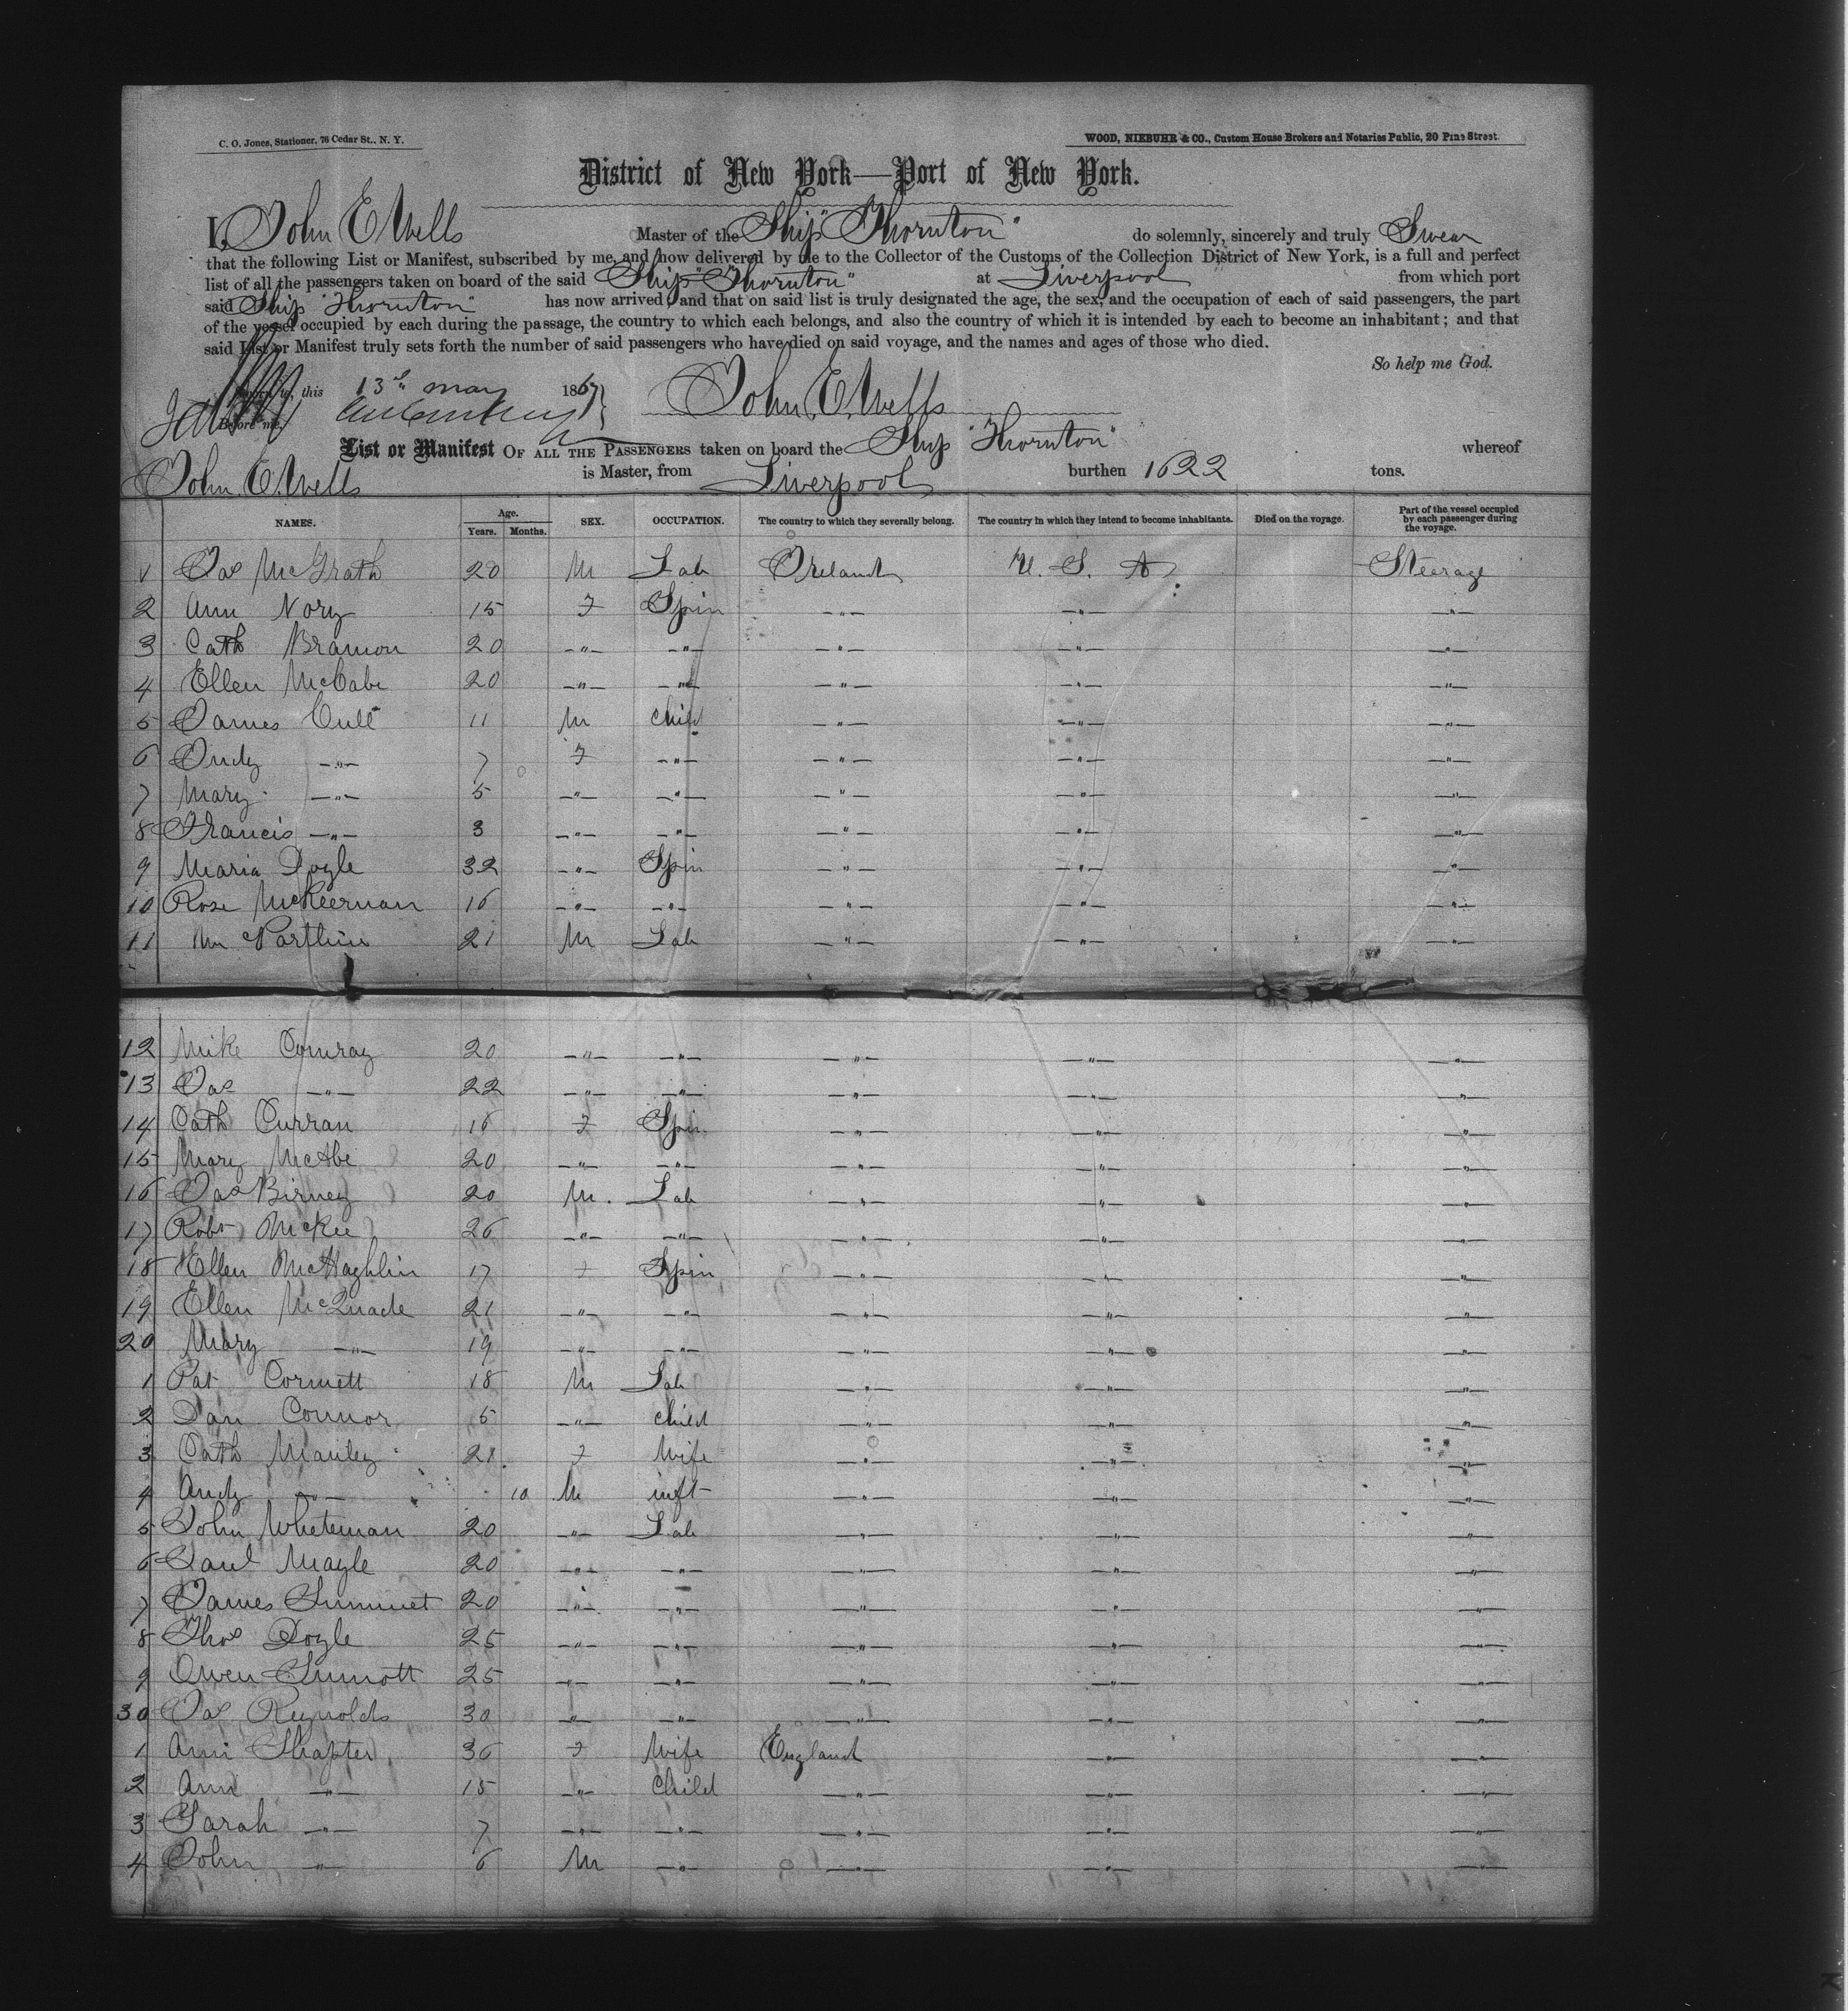 C. O. Jones, Stationer, 76 Cedar St., N. Y.
WOOD, NIEBUHR & CO., Custom House Brokers and Notaries Public, 20 Pine Street
District of New York—Port of New York.
I, John E. Wells Master of the Ship "Thornton" do solemnly, sincerely and truly Swear
that the following List or Manifest, subscribed by me, and now delivered by me to the Collector of the Customs of the Collection District of New York, is a full and perfect
list of all the passengers taken on board of the said Ship "Thornton" at Liverpool from which port
said Ship "Thornton" has now arrived; and that on said list is truly designated the age, the sex, and the occupation of each of said passengers, the part
of the vessel occupied by each during the passage, the country to which each belongs, and also the country of which it is intended by each to become an inhabitant; and that
said List or Manifest truly sets forth the number of said passengers who have died on said voyage, and the names and ages of those who died.
So help me God.
this 13th May 1867 John E. Wells
Before me,
List or Manifest OF ALL THE PASSENGERS taken on board the Ship "Thornton" whereof
John E. Wells is Master, from Liverpool burthen 1622 tons.
NAMES. Age. Years. Months. SEX. OCCUPATION. The country to which they severally belong. The country in which they intend to become inhabitants. Died on the voyage. Part of the vessel occupied by each passenger during the voyage.
1 Jas McGrath 20 M Lab Ireland U. S. A Steerage
2 Ann Nory 15 F Spin " " "
3 Cath Brannon 20 " " " " "
4 Ellen McCabe 20 " " " " "
5 James 11 M child " " "
6 Judy " 7 F " " " "
7 Mary " 5 " " " " "
8 Francis " 3 " " " " "
9 Maria Doyle 32 " Spin " " "
10 Rose McKeernan 16 " " " " "
11 21 M Lab " " "
12 Mike Conray 20 " " " " "
13 Jas " 22 " " " " "
14 Cath Curran 16 F Spin " " "
15 Mary McAbe 20 " " " " "
16 Jas Birney 20 M. Lab " " "
17 Robt McKee 26 " " " " "
18 Ellen McHaghlin 17 F Spin " " "
19 Ellen McQuade 21 " " " " "
20 Mary " 19 " " " " "
1 Pat Cormett 18 M Lab " " "
2 Dan Connor 5 " child " " "
3 Cath Manley 21 F Wife " " "
4 Andy " 10 M inft " " "
5 John Whiteman 20 " Lab " " "
6 Mayle 20 " " " " "
7 James 20 " " " " "
8 Thos Doyle 25 " " " " "
9 Owen Sinnott 25 " " " " "
30 Jas Reynolds 30 " " " " "
1 Ann Shapter 36 F Wife England " "
2 Ann " 15 " child " " "
3 Sarah " 7 " " " " "
4 John " 6 M " " " "